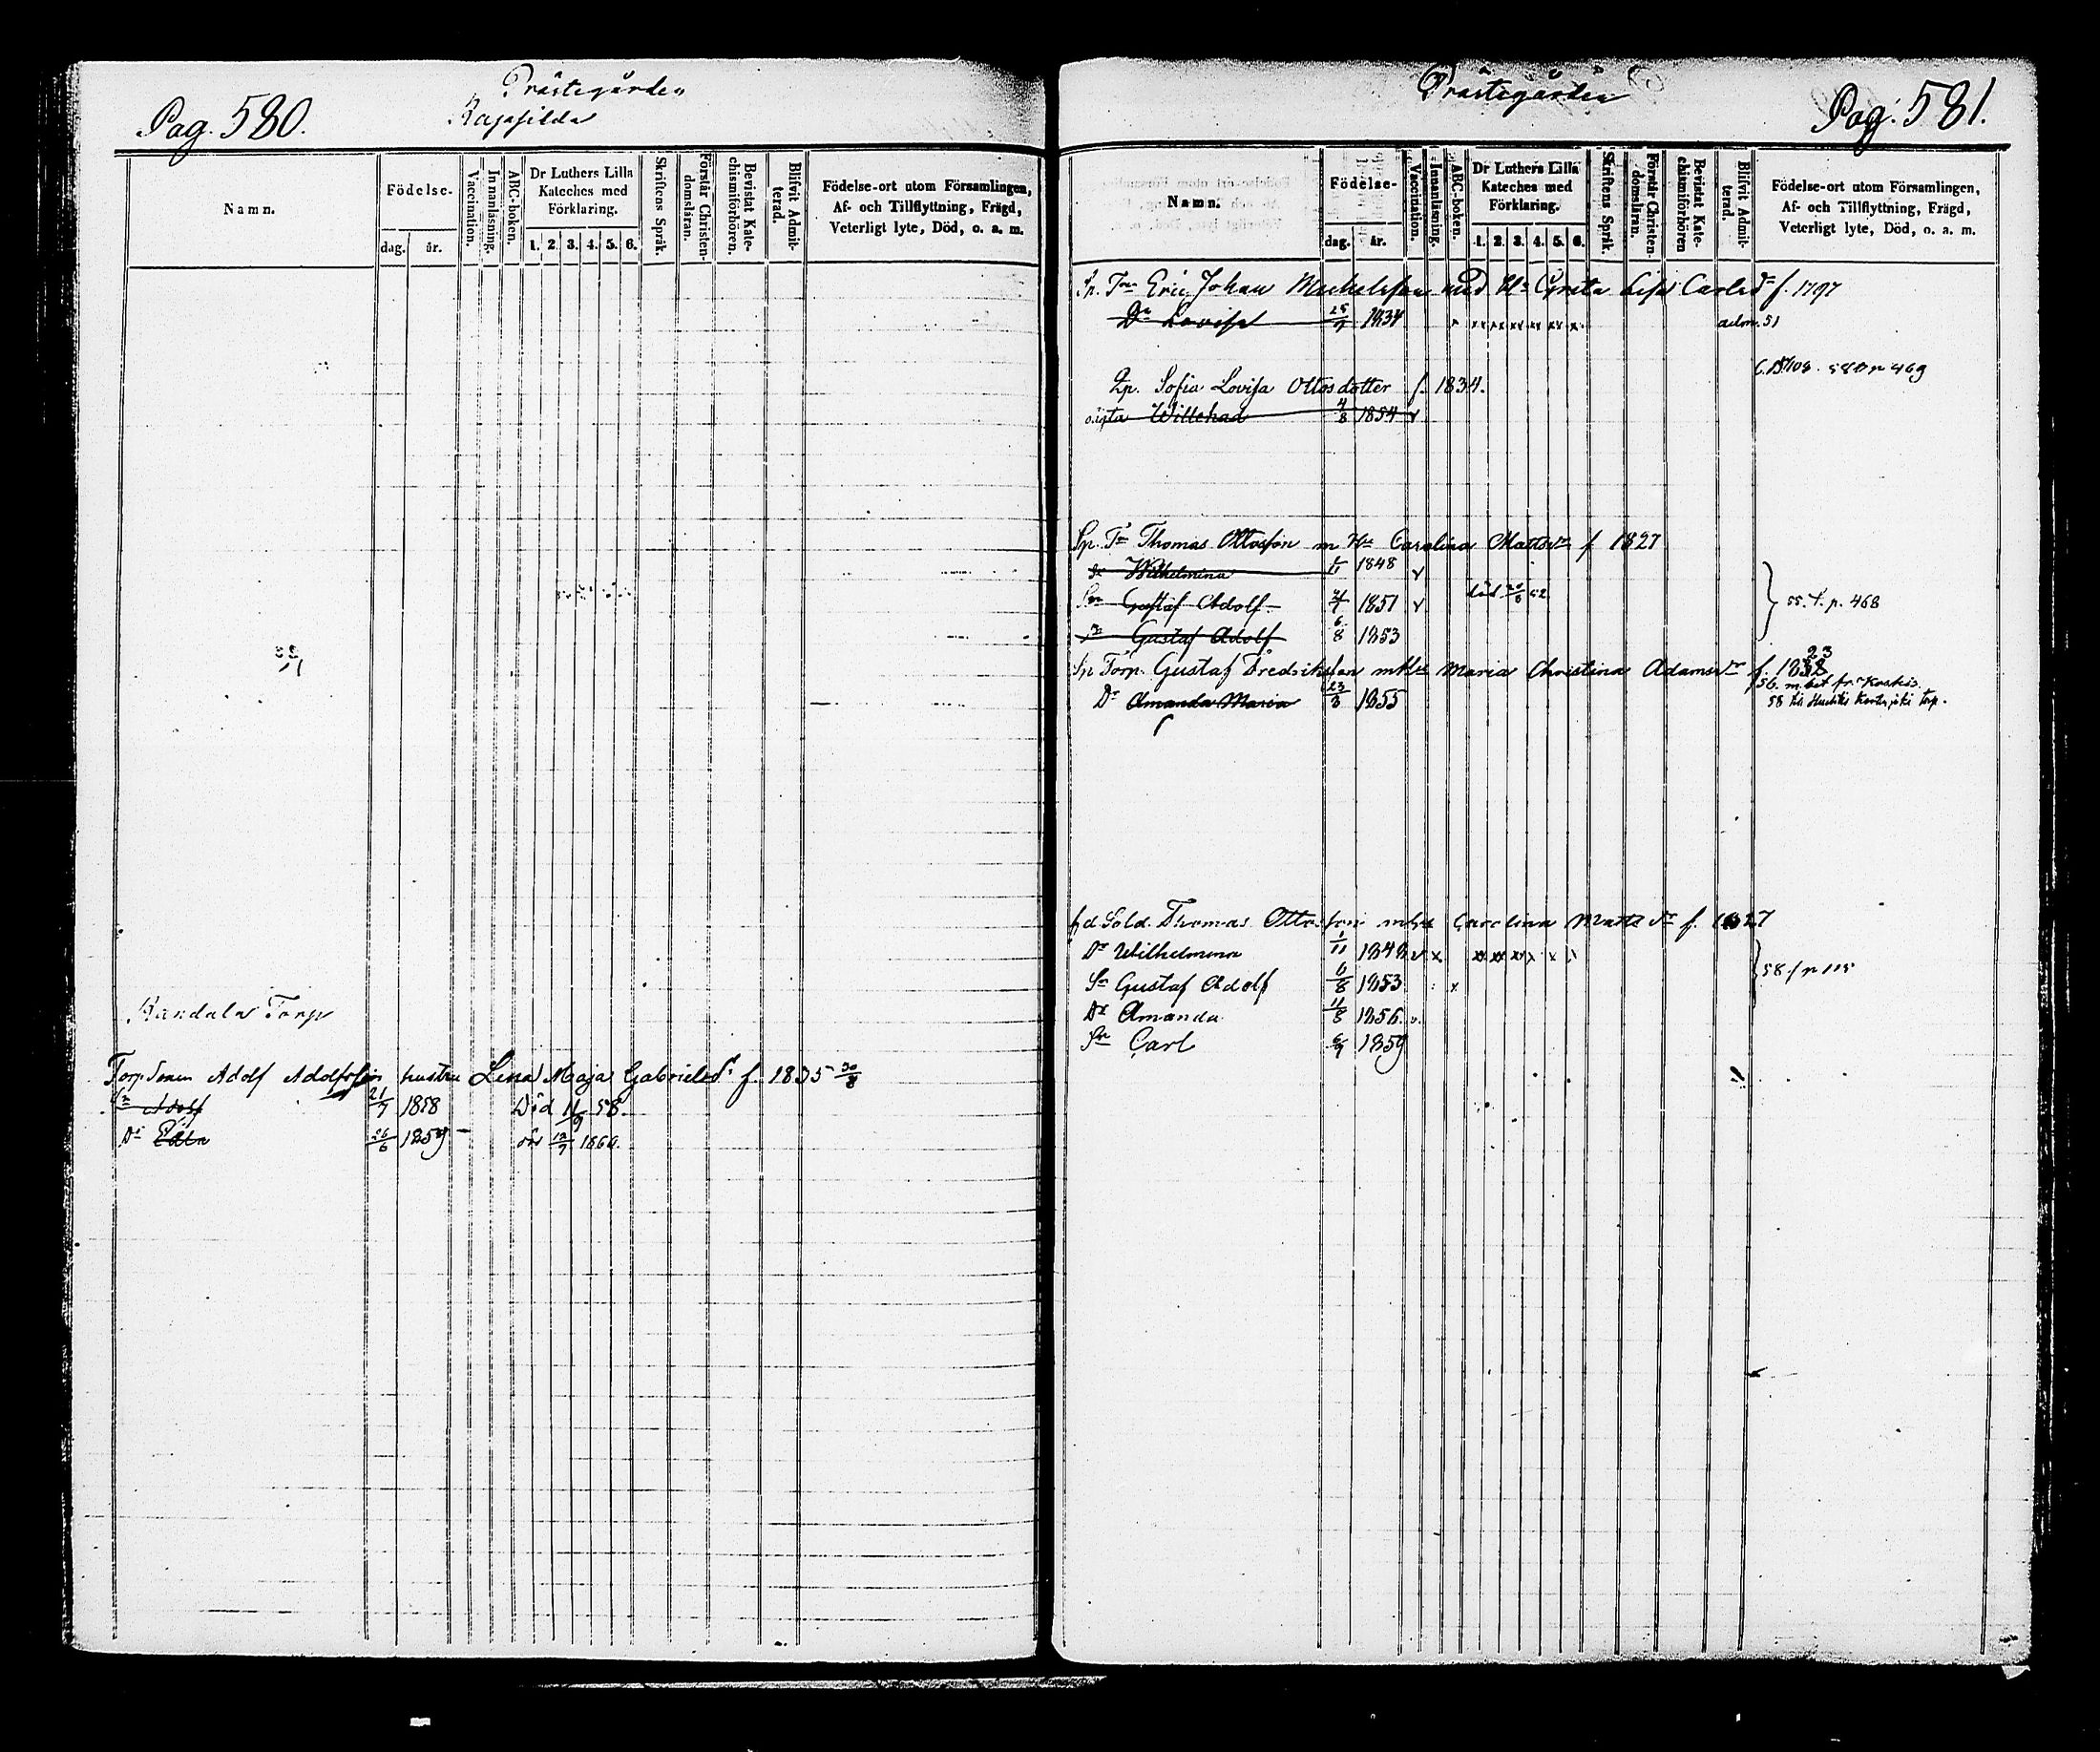 Pag. 580.
Prästegården
Namn.
Födelse-
dag.
år.
Vaccination.
Innanläsning.
ABC-boken.
Dr Luthers Lilla
Kateches med
Förklaring.
1. 2. 3. 4. 5. 6.
Skriftens Språk.
Förstår Christen-
domsläran.
Bevistat Kate-
chismiförhören.
Blifvit Admit-
terad.
Födelse-ort utom Församlingen,
Af- och Tillflyttning, Frägd,
Veterligt lyte, Död, o. a. m.
Torp
Torp Sonen Adolf Adolfsson hustru Lena Maja Gabrielsdr f. 1835 30/8
Sn Adolf 21/7 1858 Död 11/9 58.
Dr Edla 26/6 1859 död 12/7 1860.
Prästegården
Pag. 581.
Namn.
Födelse-
dag.
år.
Vaccination.
Innanläsning.
ABC-boken.
Dr Luthers Lilla
Kateches med
Förklaring.
1. 2. 3. 4. 5. 6.
Skriftens Språk.
Förstår Christen-
domsläran.
Bevistat Kate-
chismiförhören
Blifvit Admit-
terad.
Födelse-ort utom Församlingen,
Af- och Tillflyttning, Frägd,
Veterligt lyte, Död, o. a. m.
Sp. Tn Eric Johan Michelsson med Hu Greta Lisa Carlsdr f. 1797
Dr Lovisa 25/7 1834 x xx xx xx xx xx x. adm. 51
Qp. Sofia Lovisa Ottosdotter f. 1834.
oägta Willehad 4/8 1854 v
Sp. Tn Thomas Ottosson m Hu Carolina Mattsdr f 1827
Dr Wilhelmina 1/11 1848 v
Sn Gustaf Adolf 1851 v död 20/8 52
Sn Gustaf Adolf 6/8 1853
55. f. p. 468
Sp Torp. Gustaf Fredriksson m Hu Maria Christina Adamsdr f. 1828
23
Dr Amanda Maria 23/3 1855
f d Sold. Thomas Ottosson m hu Carolina Mattsdr f. 1827
Dr Wilhelmina 1/11 1848 v x xx xx xx x x
Sn Gustaf Adolf 6/8 1853 x
58. f p 115
Dr Amanda 11/8 1856. v.
Sn Carl 6/9 1859